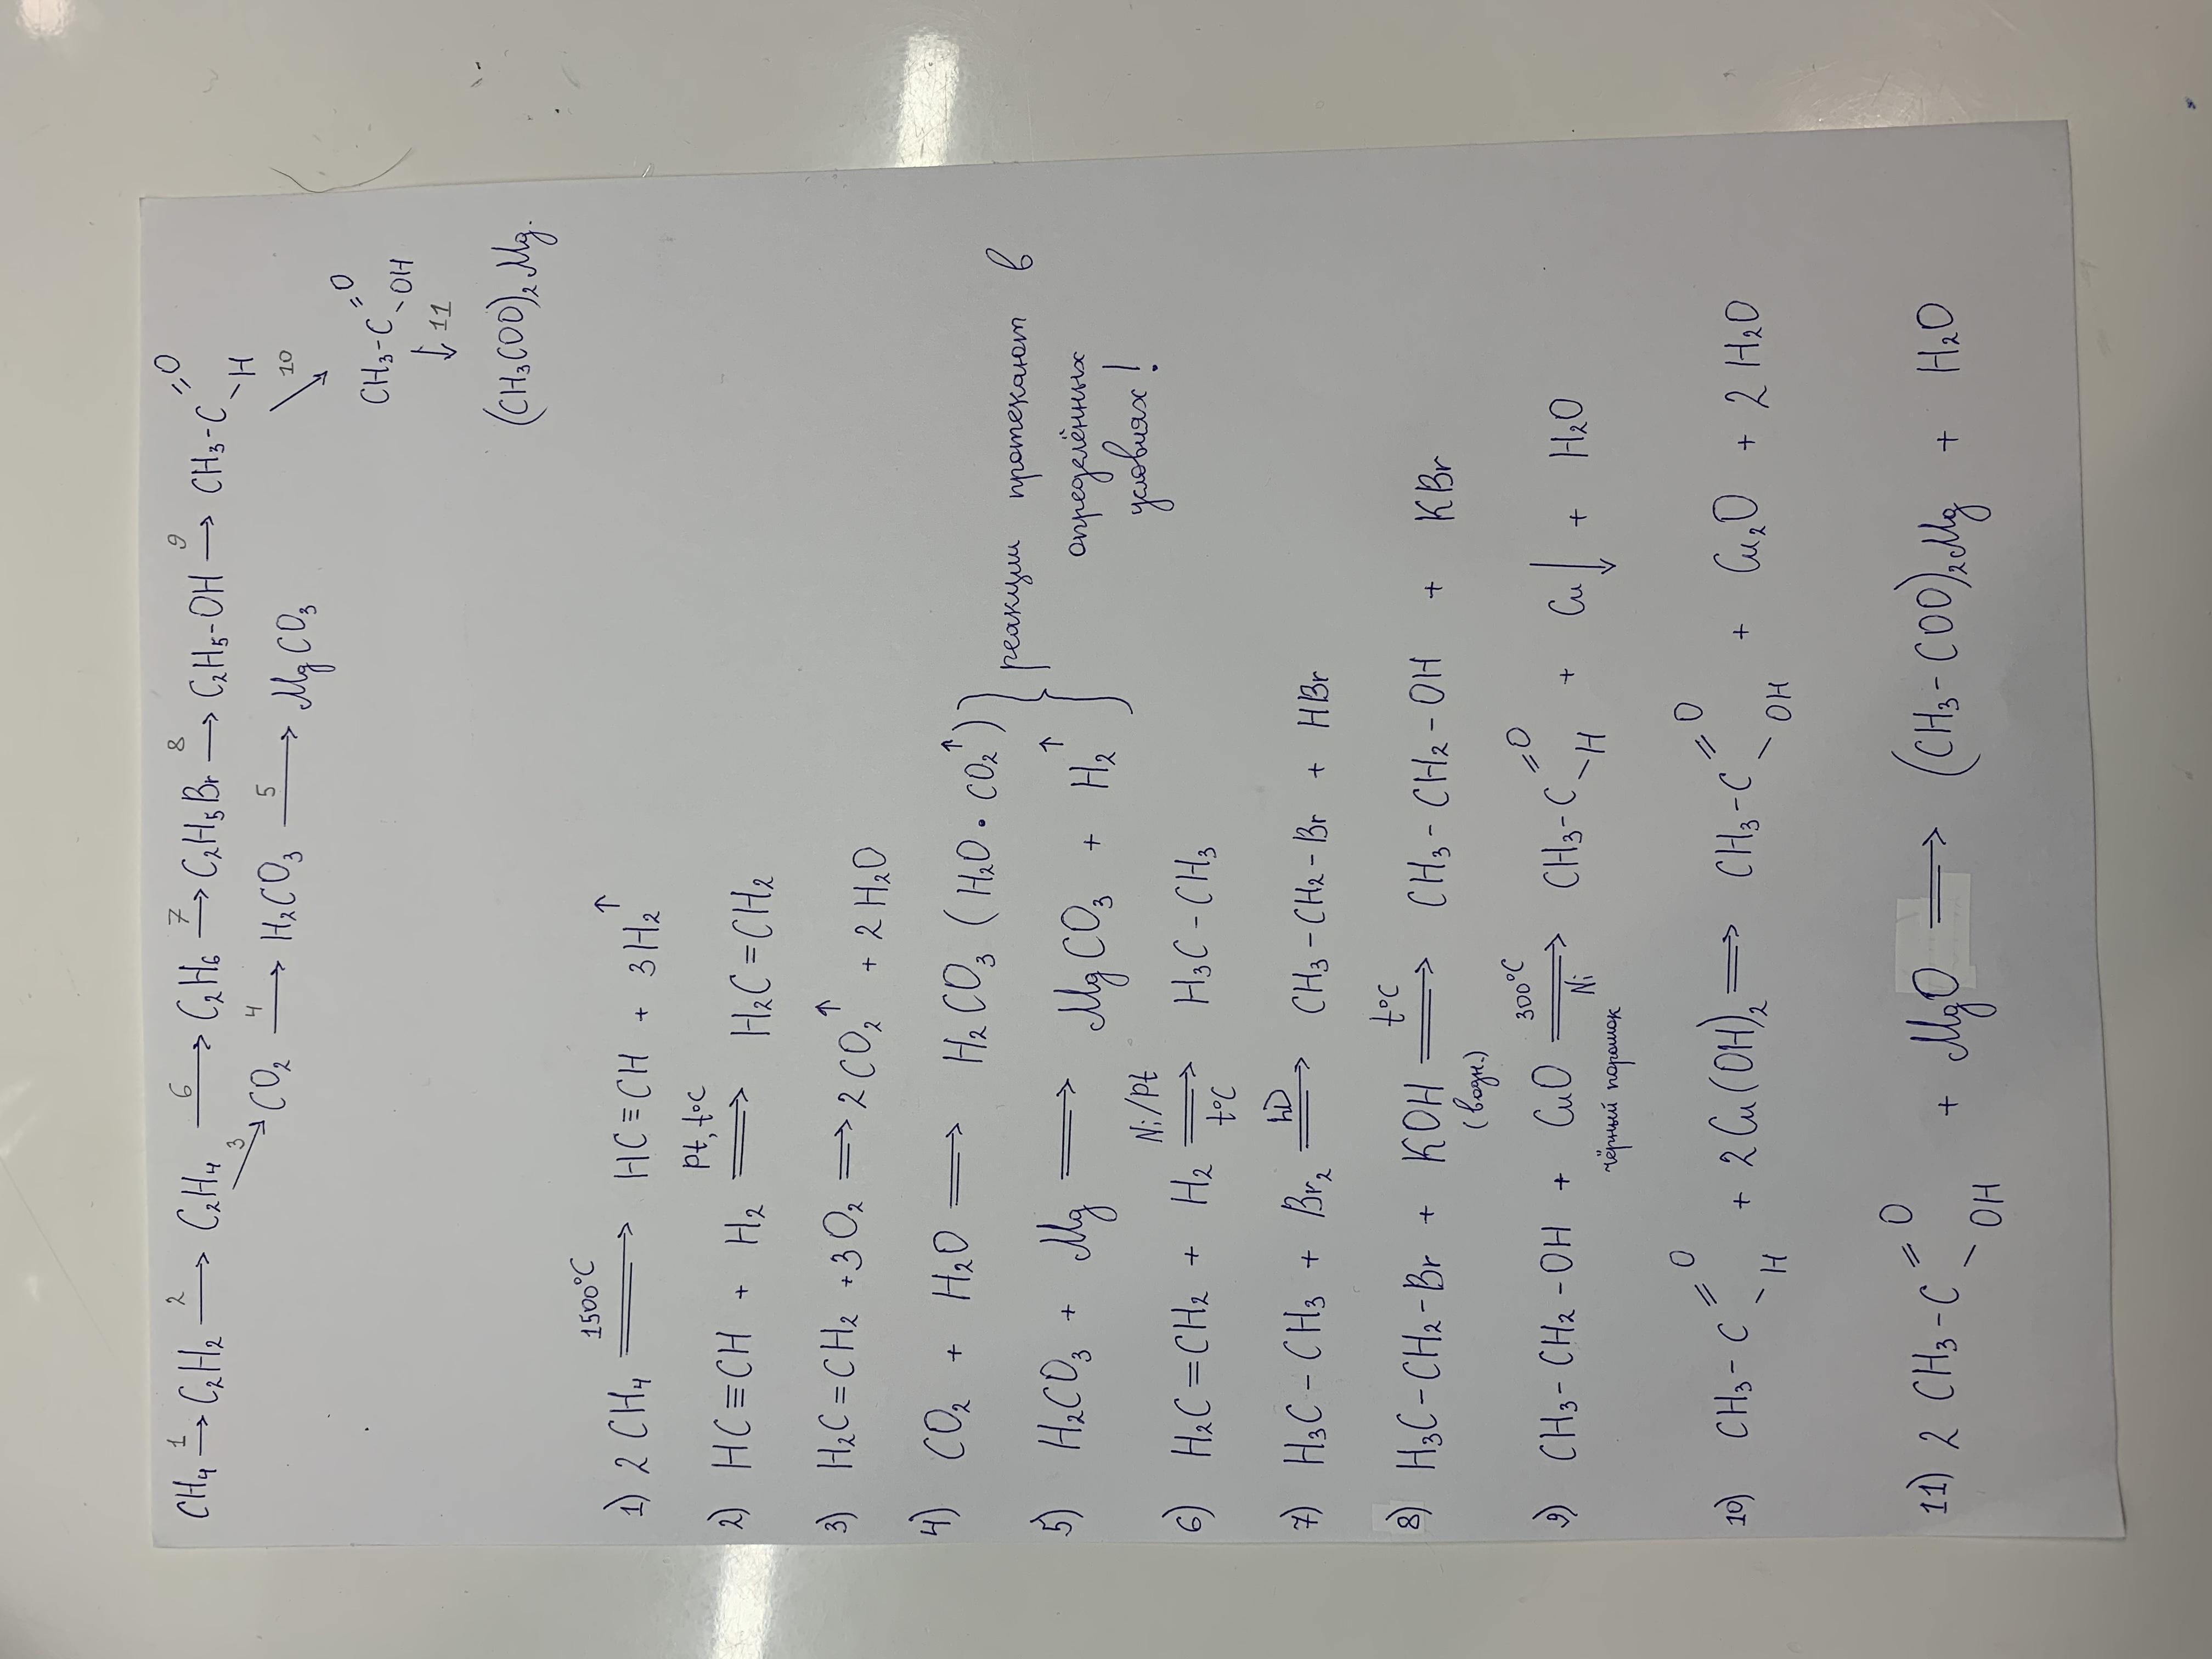 CH₄ →¹ C₂H₂ →² C₂H₄ →⁶ C₂H₆ →⁷ C₂H₅Br →⁸ C₂H₅-OH →⁹ CH₃-C(=O)-H
↘³ CO₂ →⁴ H₂CO₃ →⁵ MgCO₃
↘ 10
CH₃-C(=O)-OH
↓ 11
(CH₃COO)₂Mg.
1) 2 CH₄ =1500°C⇒ HC≡CH + 3H₂↑
2) HC≡CH + H₂ =Pt, t°C⇒ H₂C=CH₂
3) H₂C=CH₂ + 3O₂ ⇒ 2CO₂↑ + 2H₂O
4) CO₂ + H₂O ⇒ H₂CO₃ (H₂O • CO₂↑)
5) H₂CO₃ + Mg ⇒ MgCO₃ + H₂↑
} реакции протекают в
определённых
условиях!
6) H₂C=CH₂ + H₂ =Ni/Pt, t°C⇒ H₃C-CH₃
7) H₃C-CH₃ + Br₂ =hν⇒ CH₃-CH₂-Br + HBr
8) H₃C-CH₂-Br + KOH =t°C⇒ CH₃-CH₂-OH + KBr
(водн.)
9) CH₃-CH₂-OH + CuO =300°C, Ni⇒ CH₃-C(=O)-H + Cu↓ + H₂O
чёрный порошок
10) CH₃-C(=O)-H + 2Cu(OH)₂ ⇒ CH₃-C(=O)-OH + Cu₂O + 2H₂O
11) 2 CH₃-C(=O)-OH + MgO ⇒ (CH₃-COO)₂Mg + H₂O